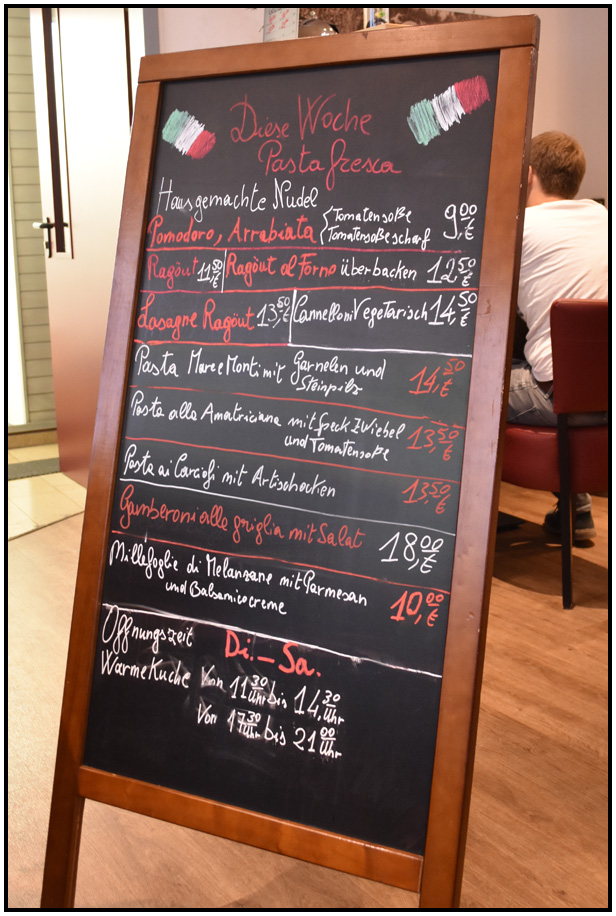 Diese Woche
Pasta fresca
Hausgemachte Nudel
Pomodoro, Arrabiata { Tomatensoße 9,00 €
Tomatensoße scharf
Ragöut 11,50 € Ragöut al Forno überbacken 12,50 €
Lasagne Ragöut 13,50 € Cannelloni Vegetarisch 14,50 €
Pasta Mare e Monti mit Garnelen und 14,50 €
Steinpilz
Pasta alla Amatriciana mit freck Zwiebel 13,50 €
und Tomatensoße
Pasta ai Carciofi mit Artischocken 13,50 €
Gamberoni alle griglia mit Salat 18,00 €
Millefoglie di Melanzane mit Parmesan 10,00 €
und Balsamicocreme
Öffnungszeit Di. – Sa.
Warme Kuche Von 11 30 Uhr bis 14,30 Uhr
Von 17 30 Uhr bis 21 00 Uhr